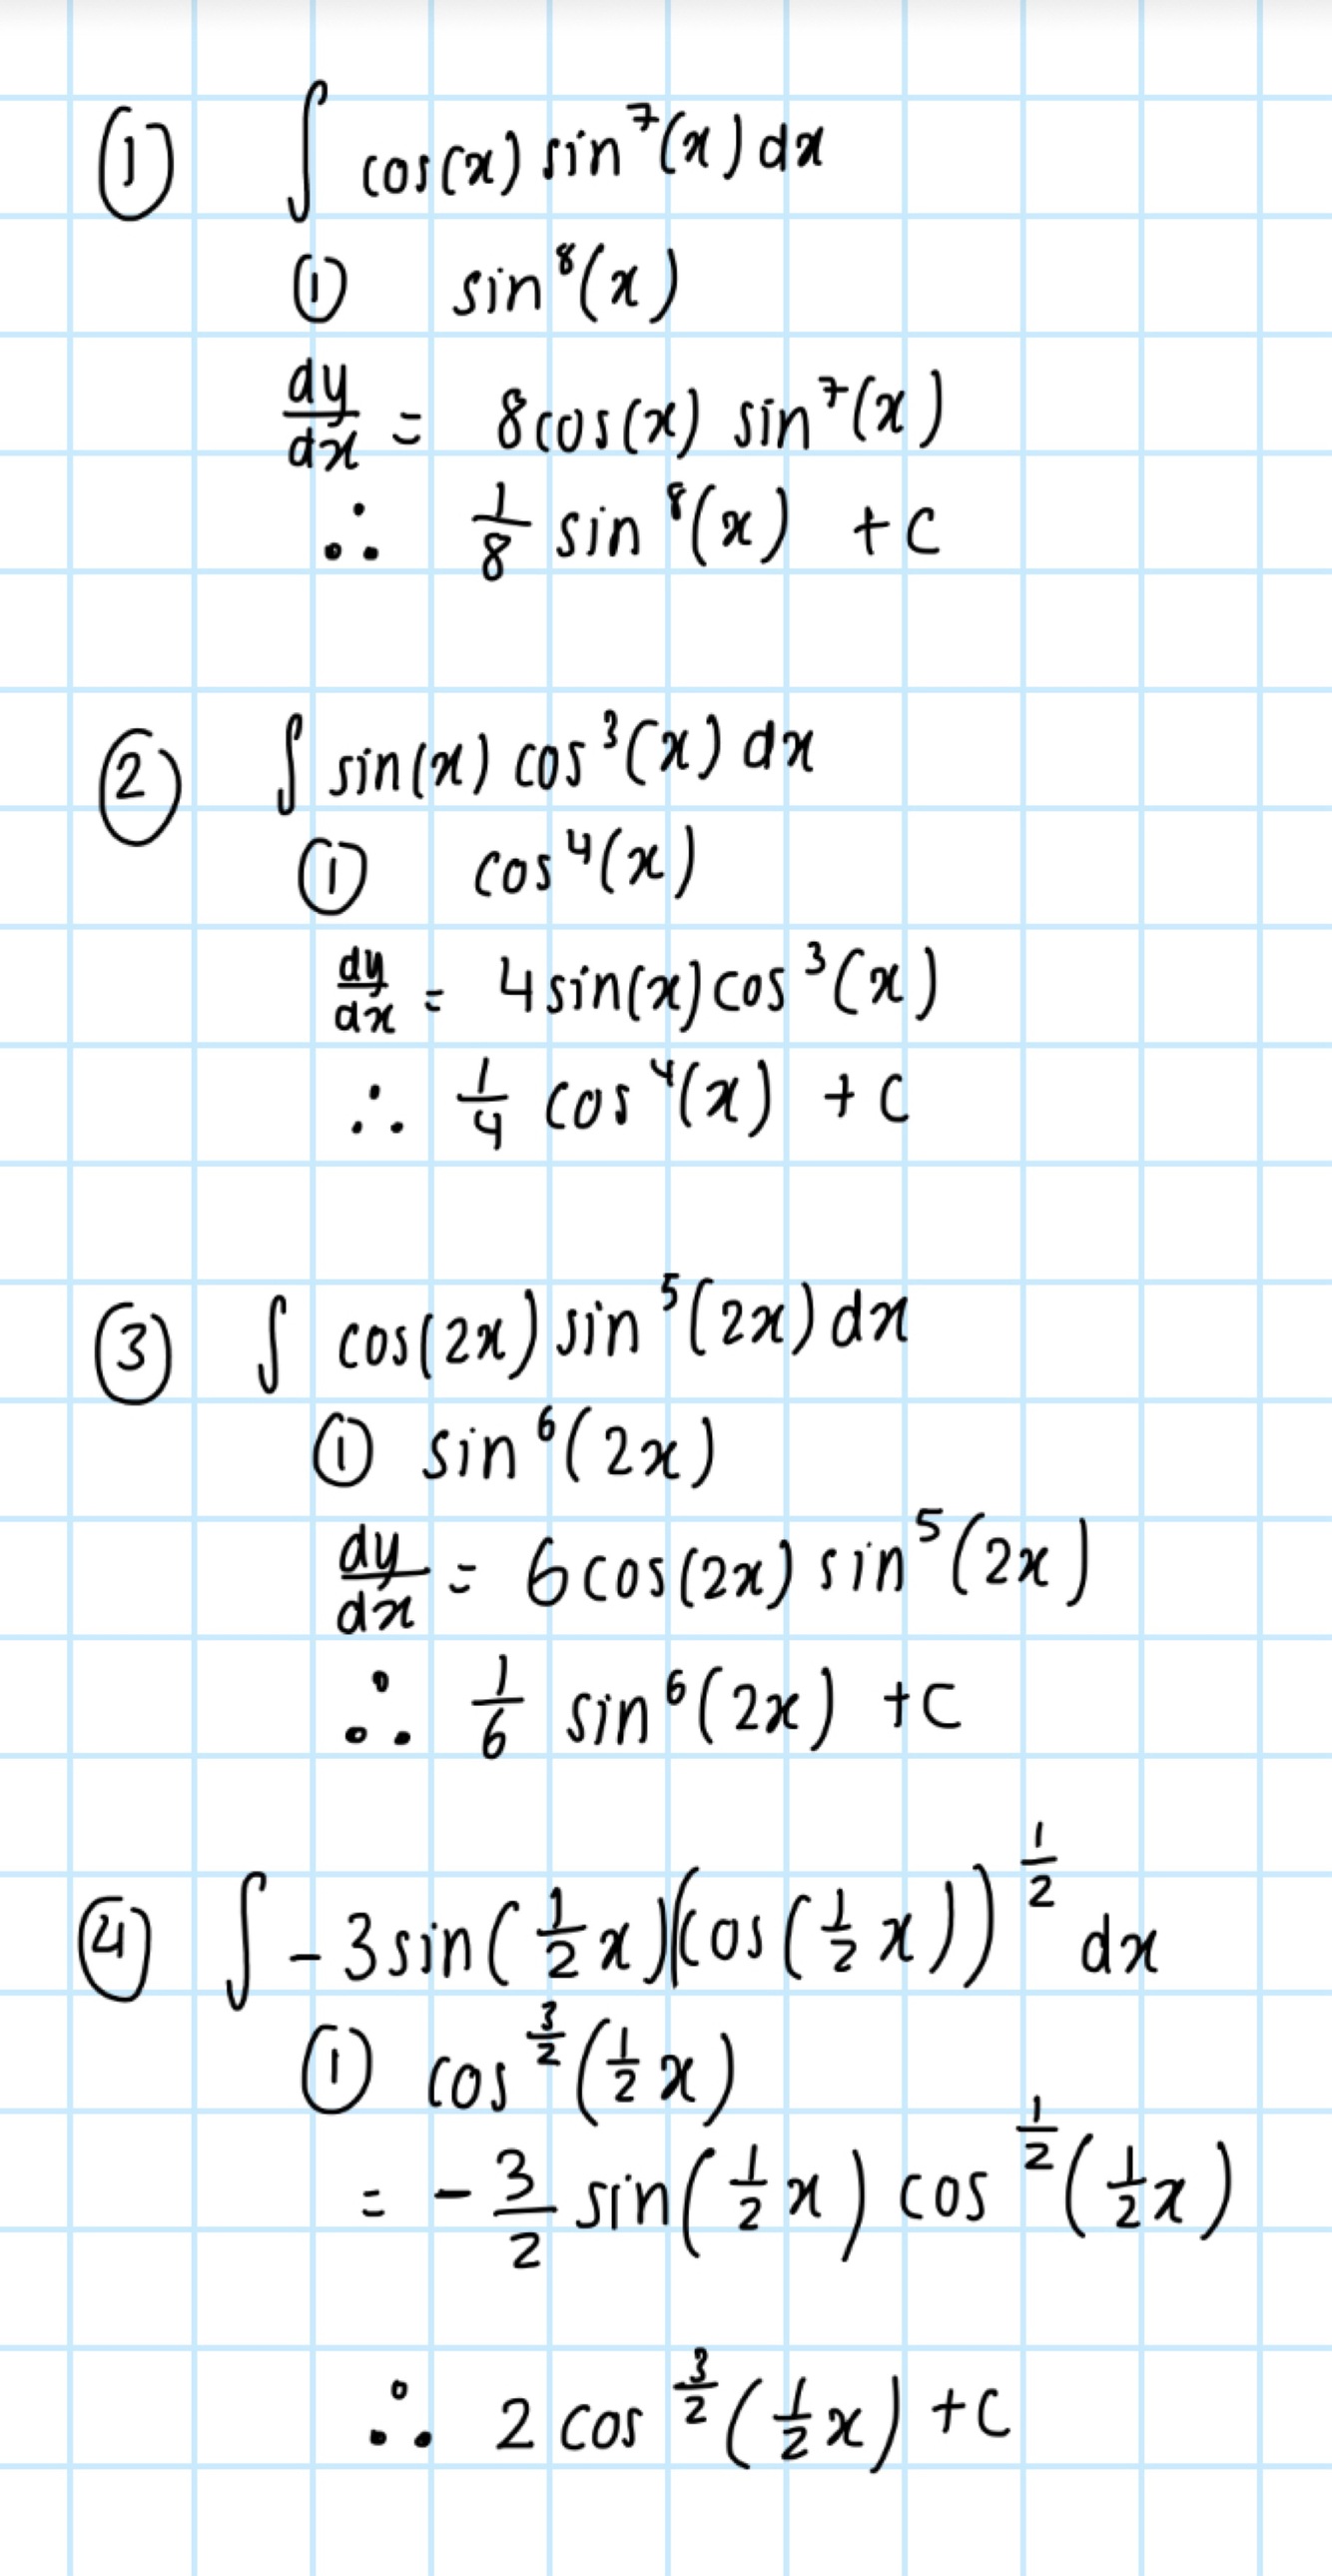 ① ∫ cos(x) sin⁷(x) dx
① sin⁸(x)
dy/dx = 8cos(x) sin⁷(x)
∴ 1/8 sin⁸(x) + c
② ∫ sin(x) cos³(x) dx
① cos⁴(x)
dy/dx = 4sin(x)cos³(x)
∴ 1/4 cos⁴(x) + c
③ ∫ cos(2x) sin⁵(2x) dx
① sin⁶(2x)
dy/dx = 6cos(2x) sin⁵(2x)
∴ 1/6 sin⁶(2x) + c
④ ∫ -3sin(1/2 x)(cos(1/2 x))^(1/2) dx
① cos^(3/2)(1/2 x)
= -3/2 sin(1/2 x) cos^(1/2)(1/2 x)
∴ 2 cos^(3/2)(1/2 x) + c